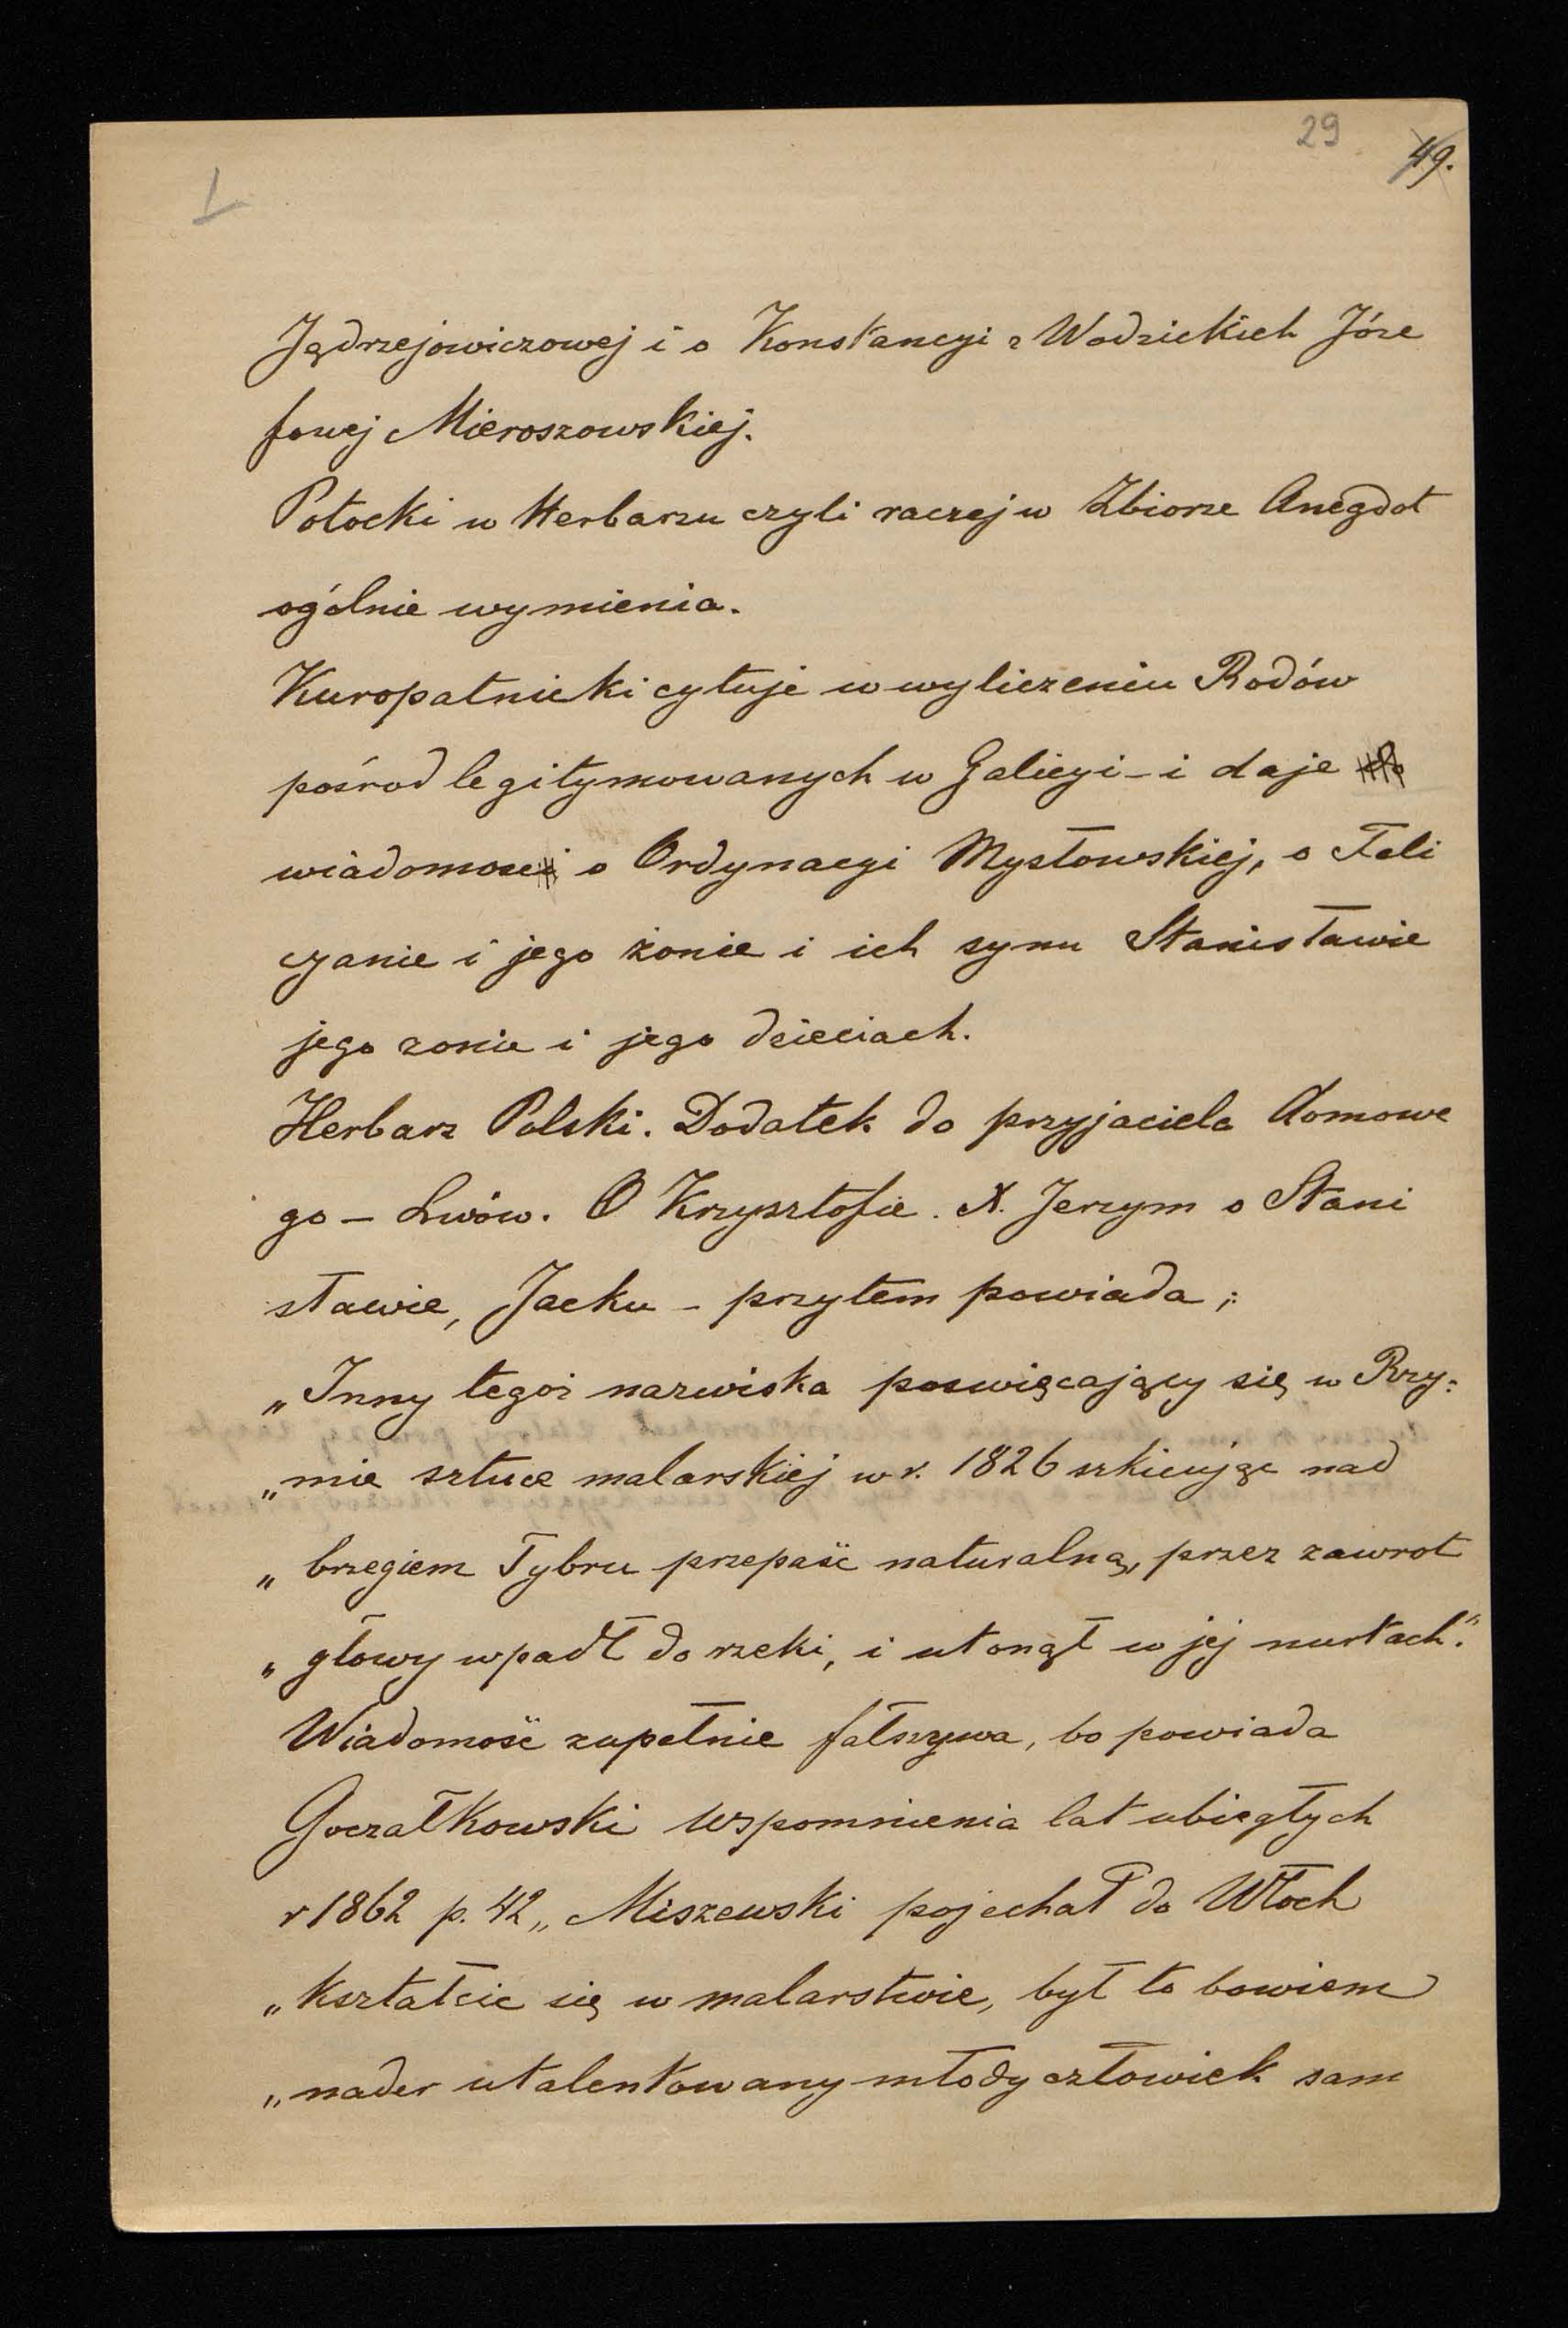 29
49.
1
Jędrzejowiczowej i o Konstancyi z Wodzickich Józe
fowej Mieroszowskiej.
Potocki w Herbarzu czyli raczej w Zbiorze Anegdot
ogólnie wymienia.
Kuropatnicki cytuje w wyliczeniu Rodów
pośrod legitymowanych w Galicyi – i daje
wiadomosci o Ordynacyi Mysłowskiej, o Feli
cyanie i jego żonie i ich synu Stanisławie
jego zonie i jego dzieciach.
Herbarz Polski. Dodatek do przyjaciela domowe
go – Lwów. O Krzysztofie. X. Jerzym o Stani
sławie, Jacku – przytem powiada;
„Inny tegoż nazwiska poswięcający się w Rzy:
„mie sztuce malarskiej w r. 1826 szkicując nad
„brzegiem Tybru przepaść naturalną, przez zawrot
„głowy wpadł do rzeki, i utonął w jej nurtach.“
Wiadomość zupełnie fałszywa, bo powiada
Goczałkowski Wspomnienia lat ubiegłych
r 1862 p. 42 „Miszewski pojechał do Włoch
„kształcic się w malarstwie, był to bowiem
„nader utalentowany młody człowiek sam